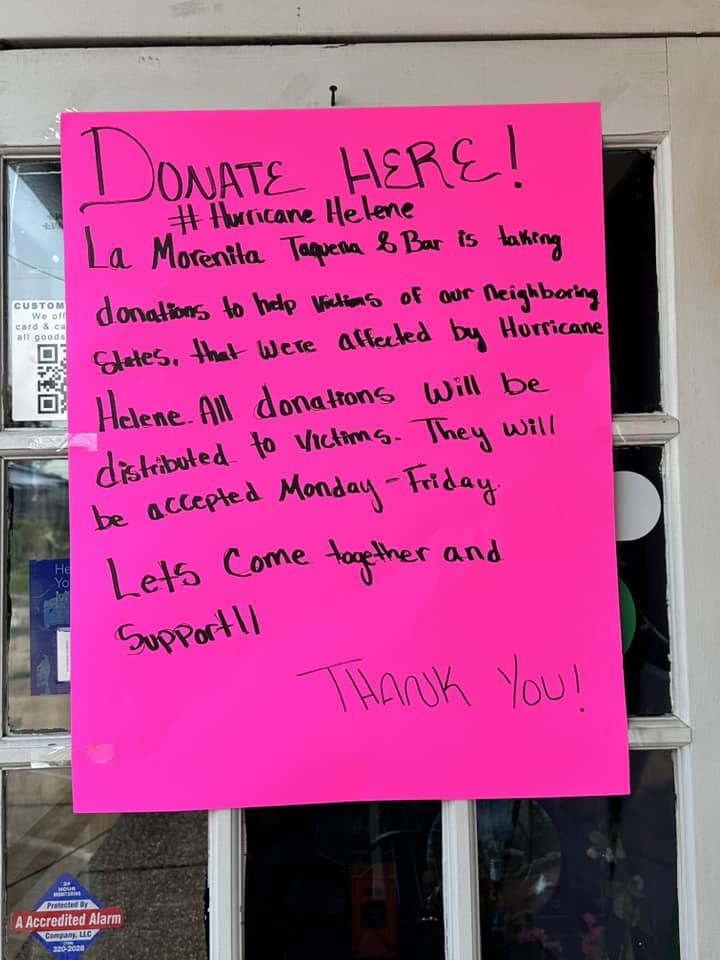 DONATE HERE!
# Hurricane Helene
La Morenita Taqueria & Bar is taking
donations to help victims of our neighboring
States, that were affected by Hurricane
Helene. All donations will be
distributed to victims. They will
be accepted Monday-Friday.
Lets Come together and
Support!!
THANK YOU!
CUSTOM
We off
card & ca
all goods
He
Yo
24
HOUR
MONITORING
Protected By
A Accredited Alarm
Company, LLC
320-2028